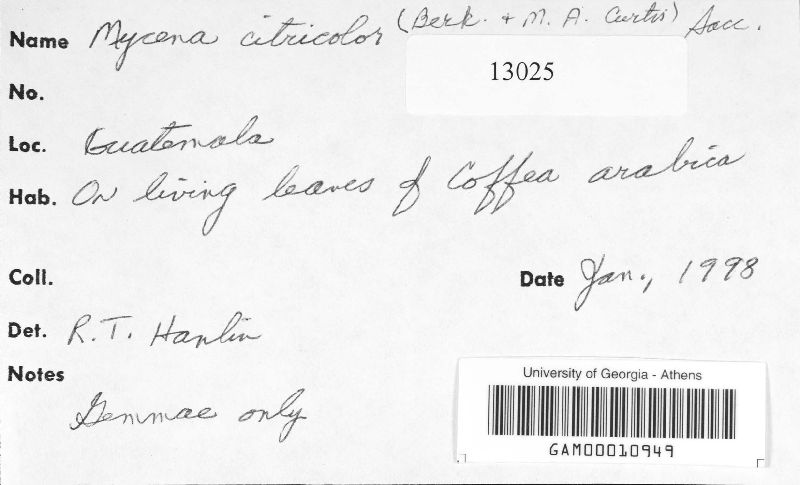 Name Mycena citricolor (Berk. + M. A. Curtis) Sacc.
13025
No.
Loc. Guatemala
Hab. On living leaves of Coffea arabica
Coll.
Date Jan., 1998
Det. R.T. Hanlin
Notes
Gemmae only
University of Georgia - Athens
GAM00010949